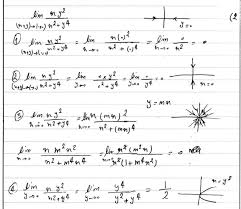 lim xy²/(x²+y⁴) (x,y)→(0,0) y=0 (2
① lim xy²/(x²+y⁴) (x,y)→(0,0) = lim x→0 x(0)²/(x²+(0)⁴) = lim x→0 0/x² = 0
② lim xy²/(x²+y⁴) = lim 0×y²/(0²+y⁴) = lim 0/y⁴ = 0 x=0
y=mx
③ lim xy²/(x²+y⁴) = lim x(mx)²/(x²+(mx)⁴)
lim x→0 x m²x²/(x²+m⁴x⁴) = lim x→0 x²(m²x)/x²(1+m⁴x²) = 0
④ lim y→0 xy²/(x²+y⁴) = lim y→0 y⁴/(y⁴+y⁴) = 1/2 x=y²